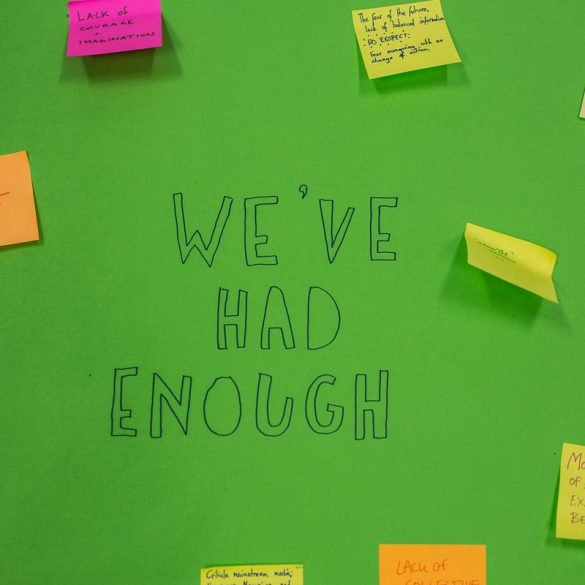 LACK OF
COURAGE
+
IMAGINATION
The fear of the future,
lack of balanced information
NO RESPECT.
Fear mongering with no
change of action.
WE'VE
HAD
ENOUGH
MO
OF
EX
BE
Criticle mainstream media;
LACK OF
COLLECTIVE